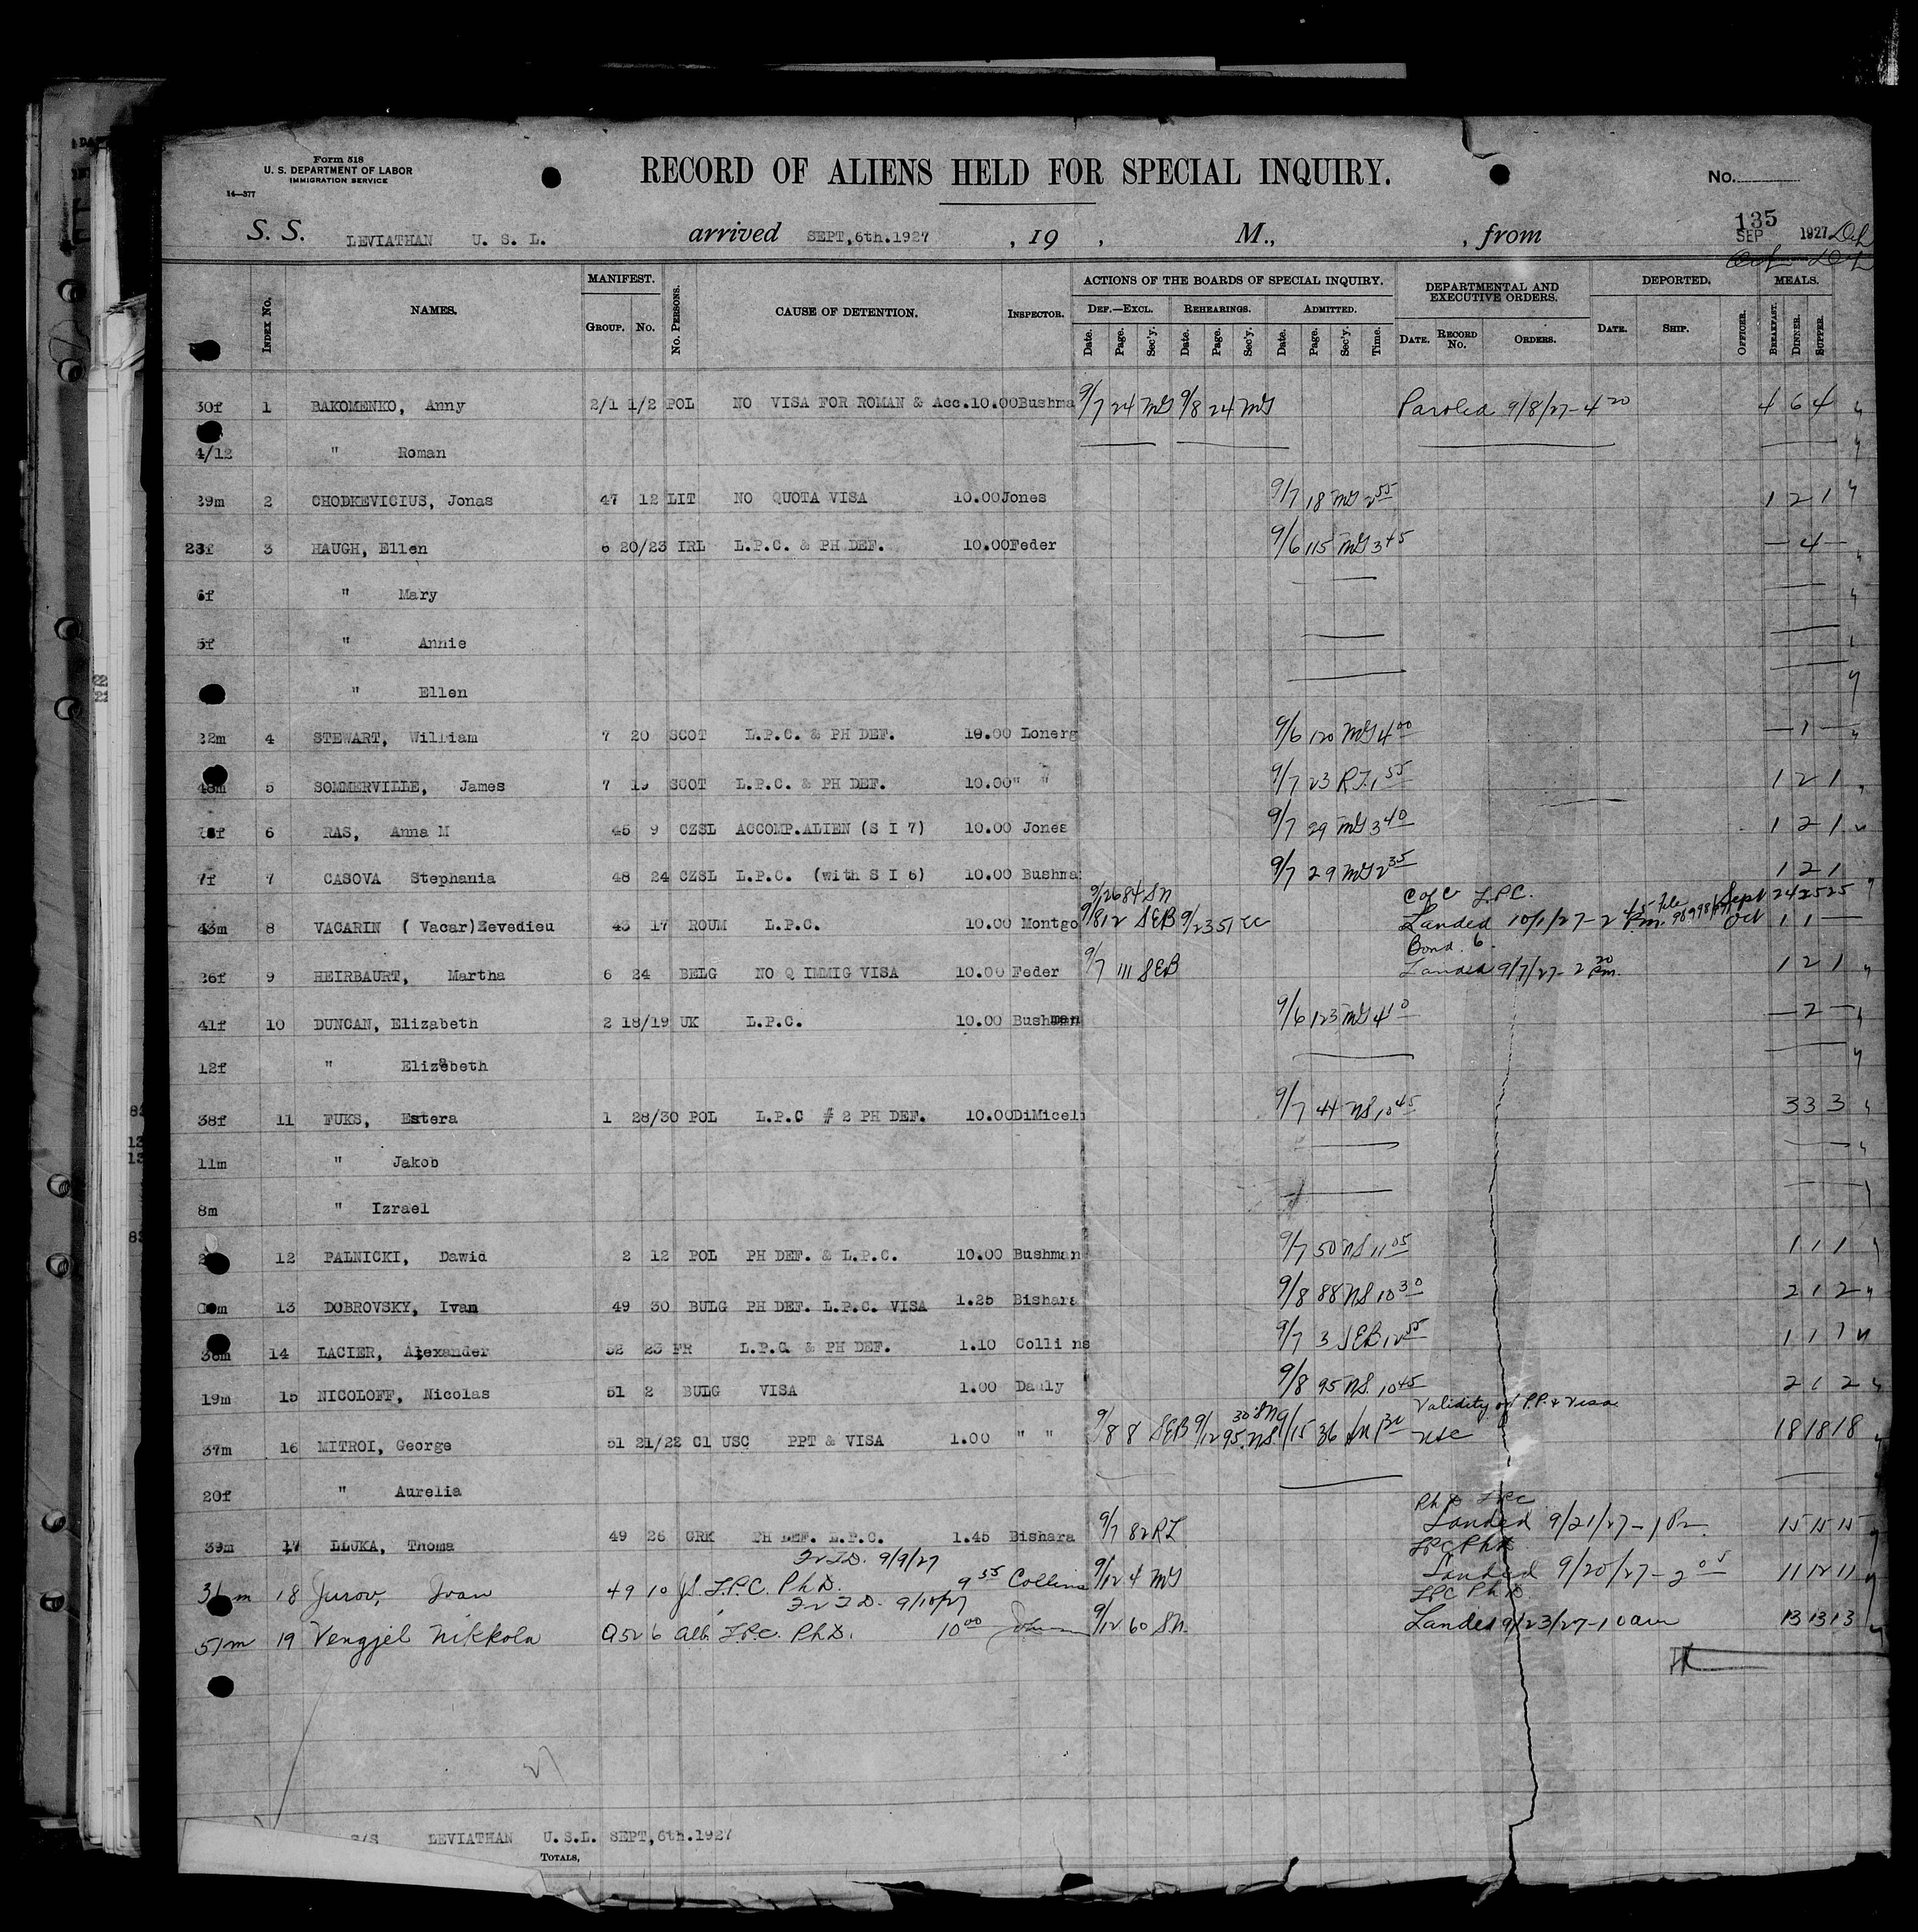 Form 518
U. S. DEPARTMENT OF LABOR
IMMIGRATION SERVICE
14—377
RECORD OF ALIENS HELD FOR SPECIAL INQUIRY.
No.
135
S. S. LEVIATHAN U. S. L. arrived SEPT,6th.1927 , 19 , M., , from SEP 1927
Index No. NAMES. MANIFEST. Group. No. No. Persons. CAUSE OF DETENTION. Inspector. ACTIONS OF THE BOARDS OF SPECIAL INQUIRY. Def.—Excl. Rehearings. Admitted. DEPARTMENTAL AND EXECUTIVE ORDERS. DEPORTED. MEALS.
Date. Page. Sec'y. Date. Page. Sec'y. Date. Page. Sec'y. Time. Date. Record No. Orders. Date. Ship. Officer. Breakfast. Dinner. Supper.
30f 1 BAKOMENKO, Anny 2/1 1/2 POL NO VISA FOR ROMAN & Acc.10.00Bushma 9/7 24 MG 9/8 24 MG Paroled 9/8/27-4 20 4 6 4
4/12 " Roman
39m 2 CHODKEVICIUS, Jonas 47 12 LIT NO QUOTA VISA 10.00Jones 9/7 18 MG 2 55 1 2 1
23f 3 HAUGH, Ellen 6 20/23 IRL L.P.C. & PH DEF. 10.00Feder 9/6 115 MG 3 45 — 4 —
6f " Mary
5f " Annie
" Ellen
22m 4 STEWART, William 7 20 SCOT L.P.C. & PH DEF. 10.00 Lonerg 9/6 120 MG 4 00 — 1 —
48m 5 SOMMERVILLE, James 7 19 SCOT L.P.C. & PH DEF. 10.00" " 9/7 23 R.J. 1 55 1 2 1
6 RAS, Anna M 46 9 CZSL ACCOMP.ALIEN (S I 7) 10.00 Jones 9/7 29 MG 3 40 1 2 1
7f 7 CASOVA Stephania 48 24 CZSL L.P.C. (with S I 6) 10.00 Bushma 9/7 29 MG 2 35 1 2 1
9/12 68 4 SN L.P.C. Sept 24 25 25
43m 8 VACARIN ( Vacar)Zevedieu 43 17 ROUM L.P.C. 10.00 Montgo 9/8 12 SEB 9/23 51 Landed 10/1/27-2 45 Pm. Oct 1 1 —
Bond.
26f 9 HEIRBAURT, Martha 6 24 BELG NO Q IMMIG VISA 10.00 Feder 9/7 111 SEB Landed 9/7/27-2 20 Pm. 1 2 1
41f 10 DUNCAN, Elizabeth 2 18/19 UK L.P.C. 10.00 Bushman 9/6 123 MG 4 10 — 2 —
12f " Elizabeth
38f 11 FUKS, Estera 1 28/30 POL L.P.C # 2 PH DEF. 10.00DiMiceli 9/7 44 NS 10 45 3 3 3
11m " Jakob
8m " Izrael
12 PALNICKI, Dawid 2 12 POL PH DEF. & L.P.C. 10.00 Bushman 9/7 50 NS 11 05 1 1 1
13 DOBROVSKY, Ivan 49 30 BULG PH DEF. L.P.C. VISA 1.25 Bishara 9/8 88 NS 10 30 2 1 2
38m 14 LACIER, Alexander 52 23 FR L.P.C. & PH DEF. 1.10 Collins 9/7 3 SEB 12 55 1 1 1
19m 15 NICOLOFF, Nicolas 51 2 BULG VISA 1.00 Dauly 9/8 95 NS. 10 45 2 1 2
Validity of P.P. & Visa
37m 16 MITROI, George 51 21/22 C1 USC PPT & VISA 1.00 " " 9/8 8 SEB 9/12 95 NS. 9/15 36 SN 18 18 18
20f " Aurelia
Ph D LPC
39m 17 LLUKA, Thoma 49 26 GRK PH DEF. L.P.C. 1.45 Bishara 9/7 82 RL Landed 9/21/27-1 Pm. 15 15 15
9/9/27 LPC Ph D
31m 18 Jurov, Ivan 49 10 L.P.C. Ph.D. 9 55 Collins 9/12 4 MG Landed 9/20/27-2 05 11 12 11
9/10/27 LPC Ph D
51m 19 Vengjel Nikkola 52 6 Alb. L.P.C. Ph.D. 10 00 9/12 60 S.N. Landed 9/23/27-10 am 13 13 13
S/S LEVIATHAN U.S.L. SEPT,6th.1927
Totals,